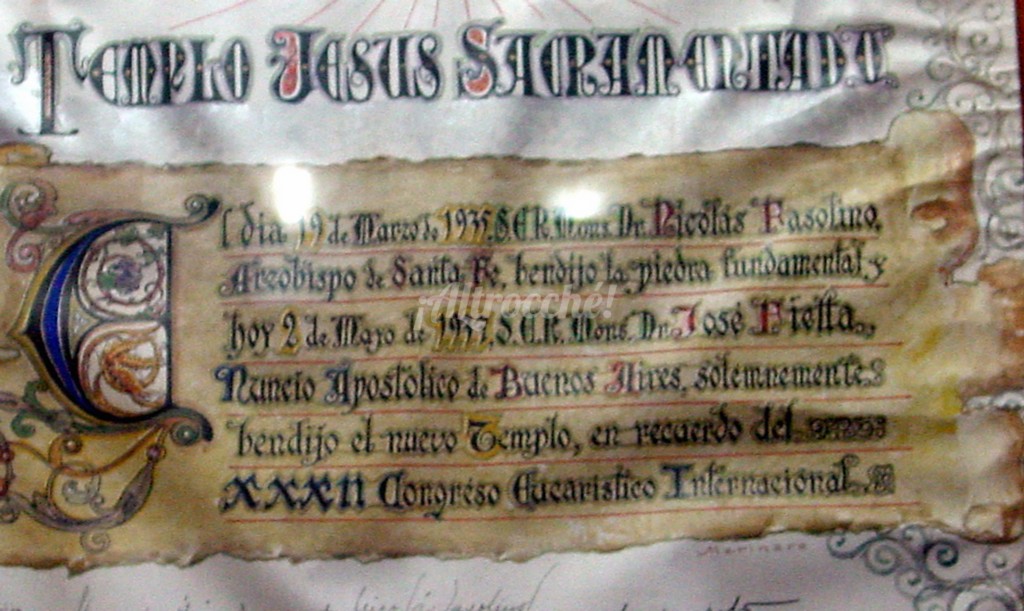 TEMPLO JESUS SACRAMENTADO
El dia 19 de Marzo de 1935, S.E.R. Mons. Dr. Nicolás Fasolino,
Arzobispo de Santa Fe, bendijo la piedra fundamental y
hoy 2 de Mayo de 1937, S.E.R. Mons. Dr. José Fietta,
Nuncio Apostolico de Buenos Aires, solemnemente
bendijo el nuevo Templo, en recuerdo del
XXXII Congreso Eucaristico Internacional.
¡Altrocché!
Marinaro